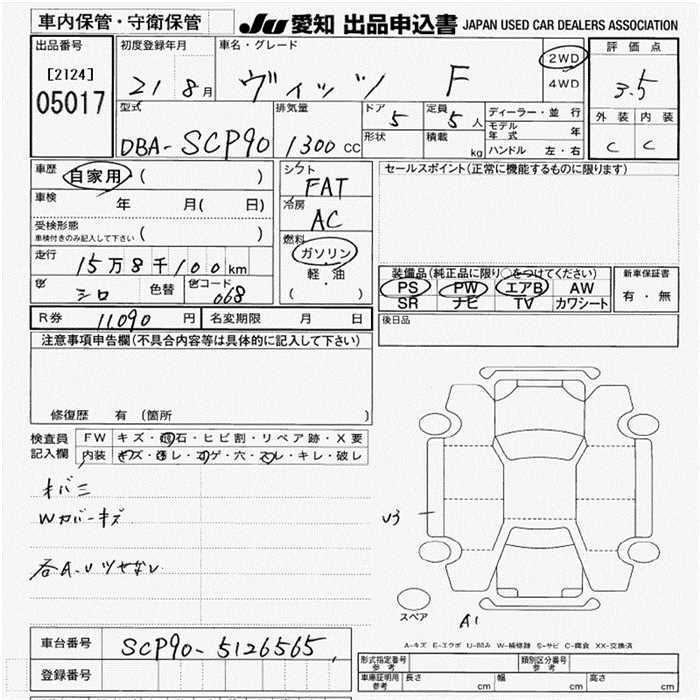 車内保管・守衛保管
JU 愛知 出品申込書 JAPAN USED CAR DEALERS ASSOCIATION
出品番号
[2124]
05017
初度登録年月
21 8月
車名・グレード
ヴィッツ F
2WD
4WD
評価点
3.5
外装 内装
C C
型式
DBA-SCP90
排気量
1300 CC
ドア
5
定員
5人
形状
積載
kg
ディーラー・並行
モデル年式 年
ハンドル 左・右
車歴
自家用 ( )
車検
年 月( 日)
受検形態
車検付きのみ記入して下さい ( )
走行
15万8千100km
色
シロ
色替
色コード
068
シフト
FAT
冷房
AC
燃料
ガソリン
軽・油
( )
セールスポイント(正常に機能するものに限ります)
装備品(純正品に限り○をつけてください)
PS PW エアB AW
SR ナビ TV カワシート
新車保証書
有・無
R券 11,090 円
名変期限 月 日
後日品
注意事項申告欄(不具合内容等は具体的に記入して下さい)
修復歴 有 (箇所 )
検査員
記入欄
FW キズ・飛石・ヒビ割・リペア跡・X要
内装 キズ・汚レ・コゲ・穴・スレ・キレ・破レ
オバミ
Wカバーキズ
各A.Uツせなし
U3
A1
スペア
A-キズ E-エクボ U-凹み W-補修跡 S-サビ C-腐食 XX-交換済
車台番号
SCP90-5126565
登録番号
形式指定番号
参考
類別区分番号
参考
車庫証明用
参考
長さ cm 幅 cm 高さ cm